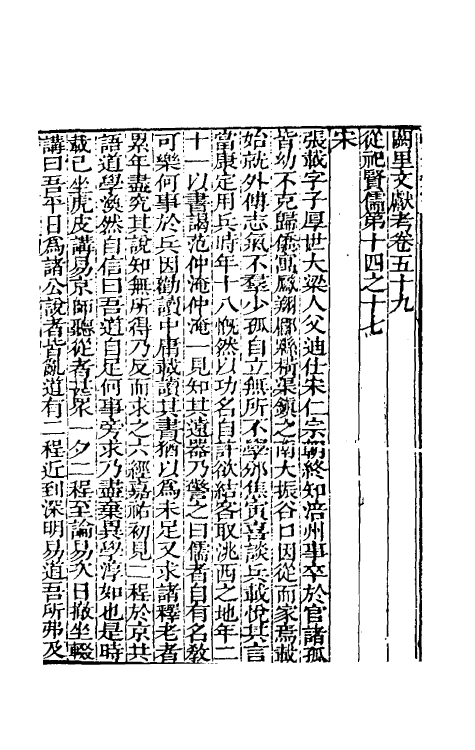 闕里文獻考卷五十九
從祀賢儒第十四之十七
宋
張載字子厚世大梁人父迪仕宋仁宗朝終知涪州事卒於官諸孤
皆幼不克歸僑寓鳳翔郿縣橫渠鎮之南大振谷口因徙而家焉載
始就外傅志氣不羣少孤自立無所不學邠焦寅喜談兵載悅其言
當康定用兵時年十八慨然以功名自許欲結客取洮西之地年二
十一以書謁范仲淹仲淹一見知其遠器乃警之曰儒者自有名敎
可樂何事於兵因勸讀中庸載讀其書猶以爲未足又求諸釋老者
累年盡究其說知無所得乃反而求之六經嘉祐初見二程於京共
語道學渙然自信曰吾道自足何事旁求乃盡棄異學淳如也是時
載已坐虎皮講易京師聽從者甚衆一夕二程至論易次日撤坐輟
講曰吾平日爲諸公說者皆亂道有二程近到深明易道吾所弗及